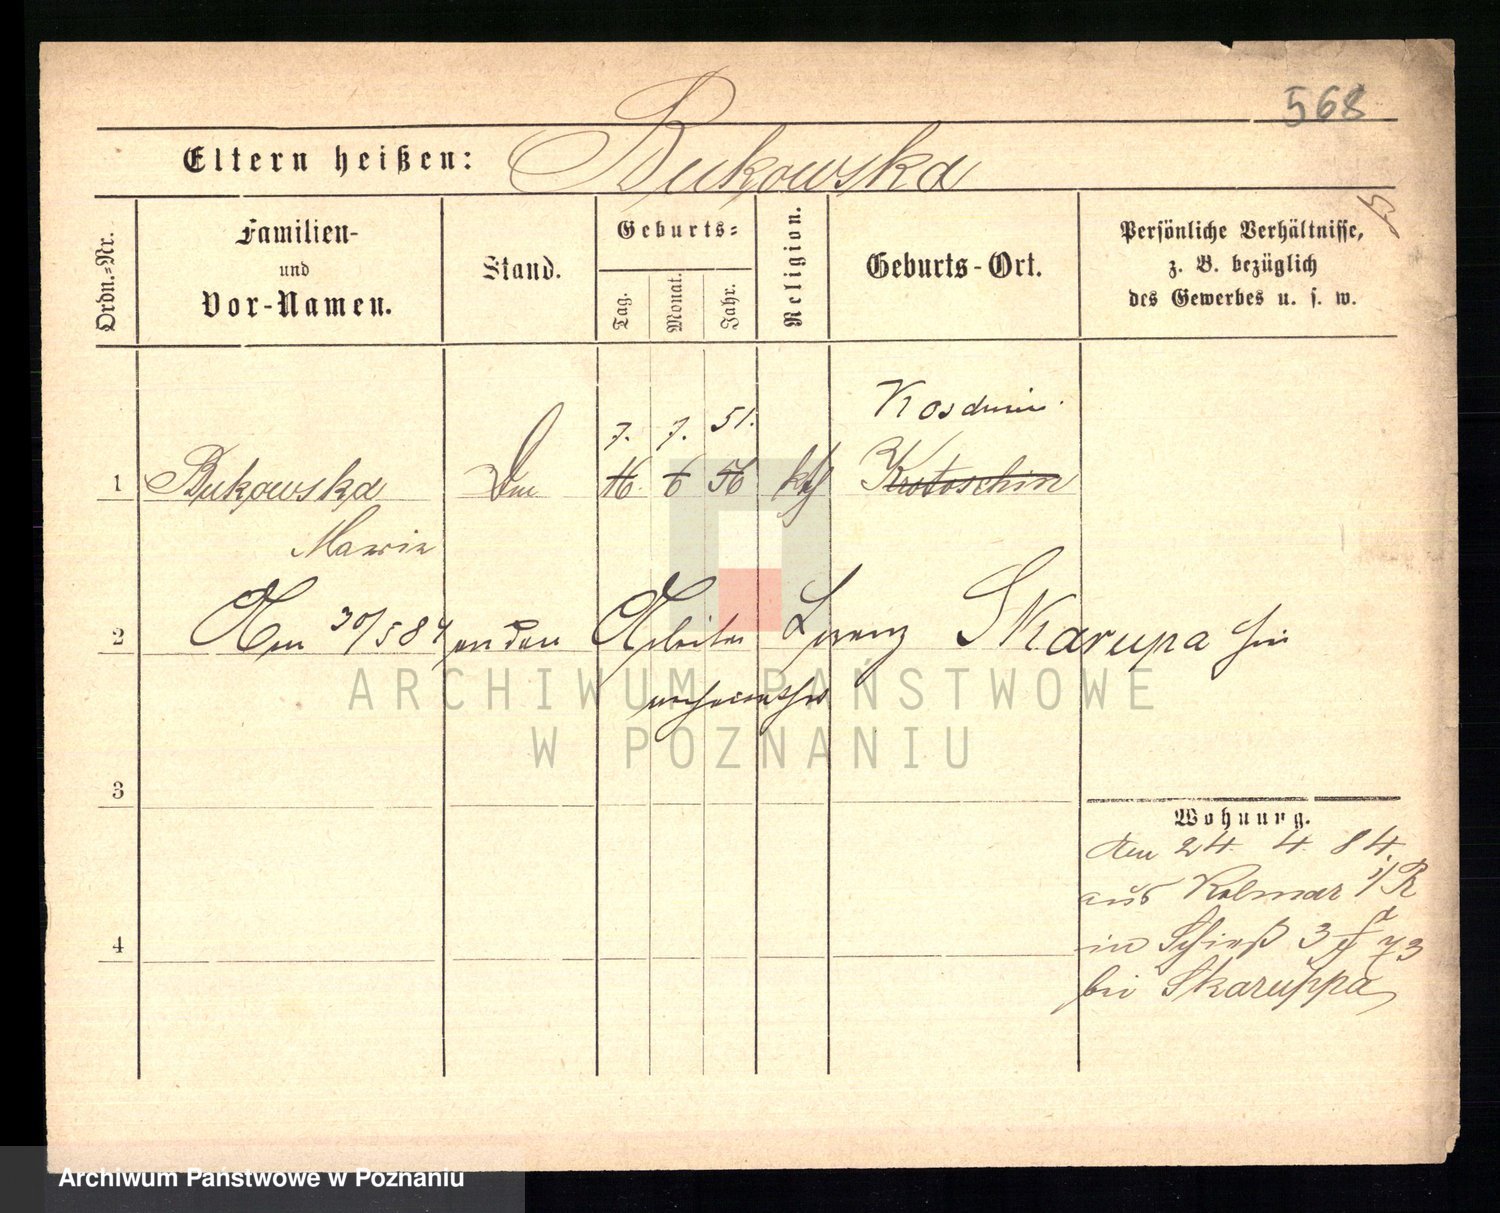 568
Eltern heißen: Bukowska
Ordn.=Nr.
Familien-
und
Vor-Namen.
Stand.
Geburts=
Tag.
Monat.
Jahr.
Religion.
Geburts-Ort.
Persönliche Verhältnisse,
z. B. bezüglich
des Gewerbes u. s. w.
7. 7. 51. Kosdmin
1 Bukowska 16 6 56 kth Krotoschin
Marie
2 Am 30/5 84 an den Arbeiter Lorenz Skarupa hier
verheirathet
ARCHIWUM PAŃSTWOWE
W POZNANIU
3
Wohnung.
den 24. 4. 84.
aus Kolmar
4
in Schieß 3 73
bei Skaruppa
Archiwum Państwowe w Poznaniu